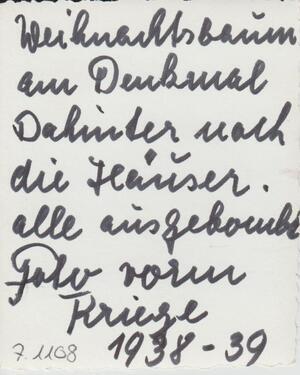 Weihnachtsbaum
am Denkmal
Dahinter noch
die Häuser.
alle ausgebombt
Foto vorm
Kriege
7.1108 1938-39